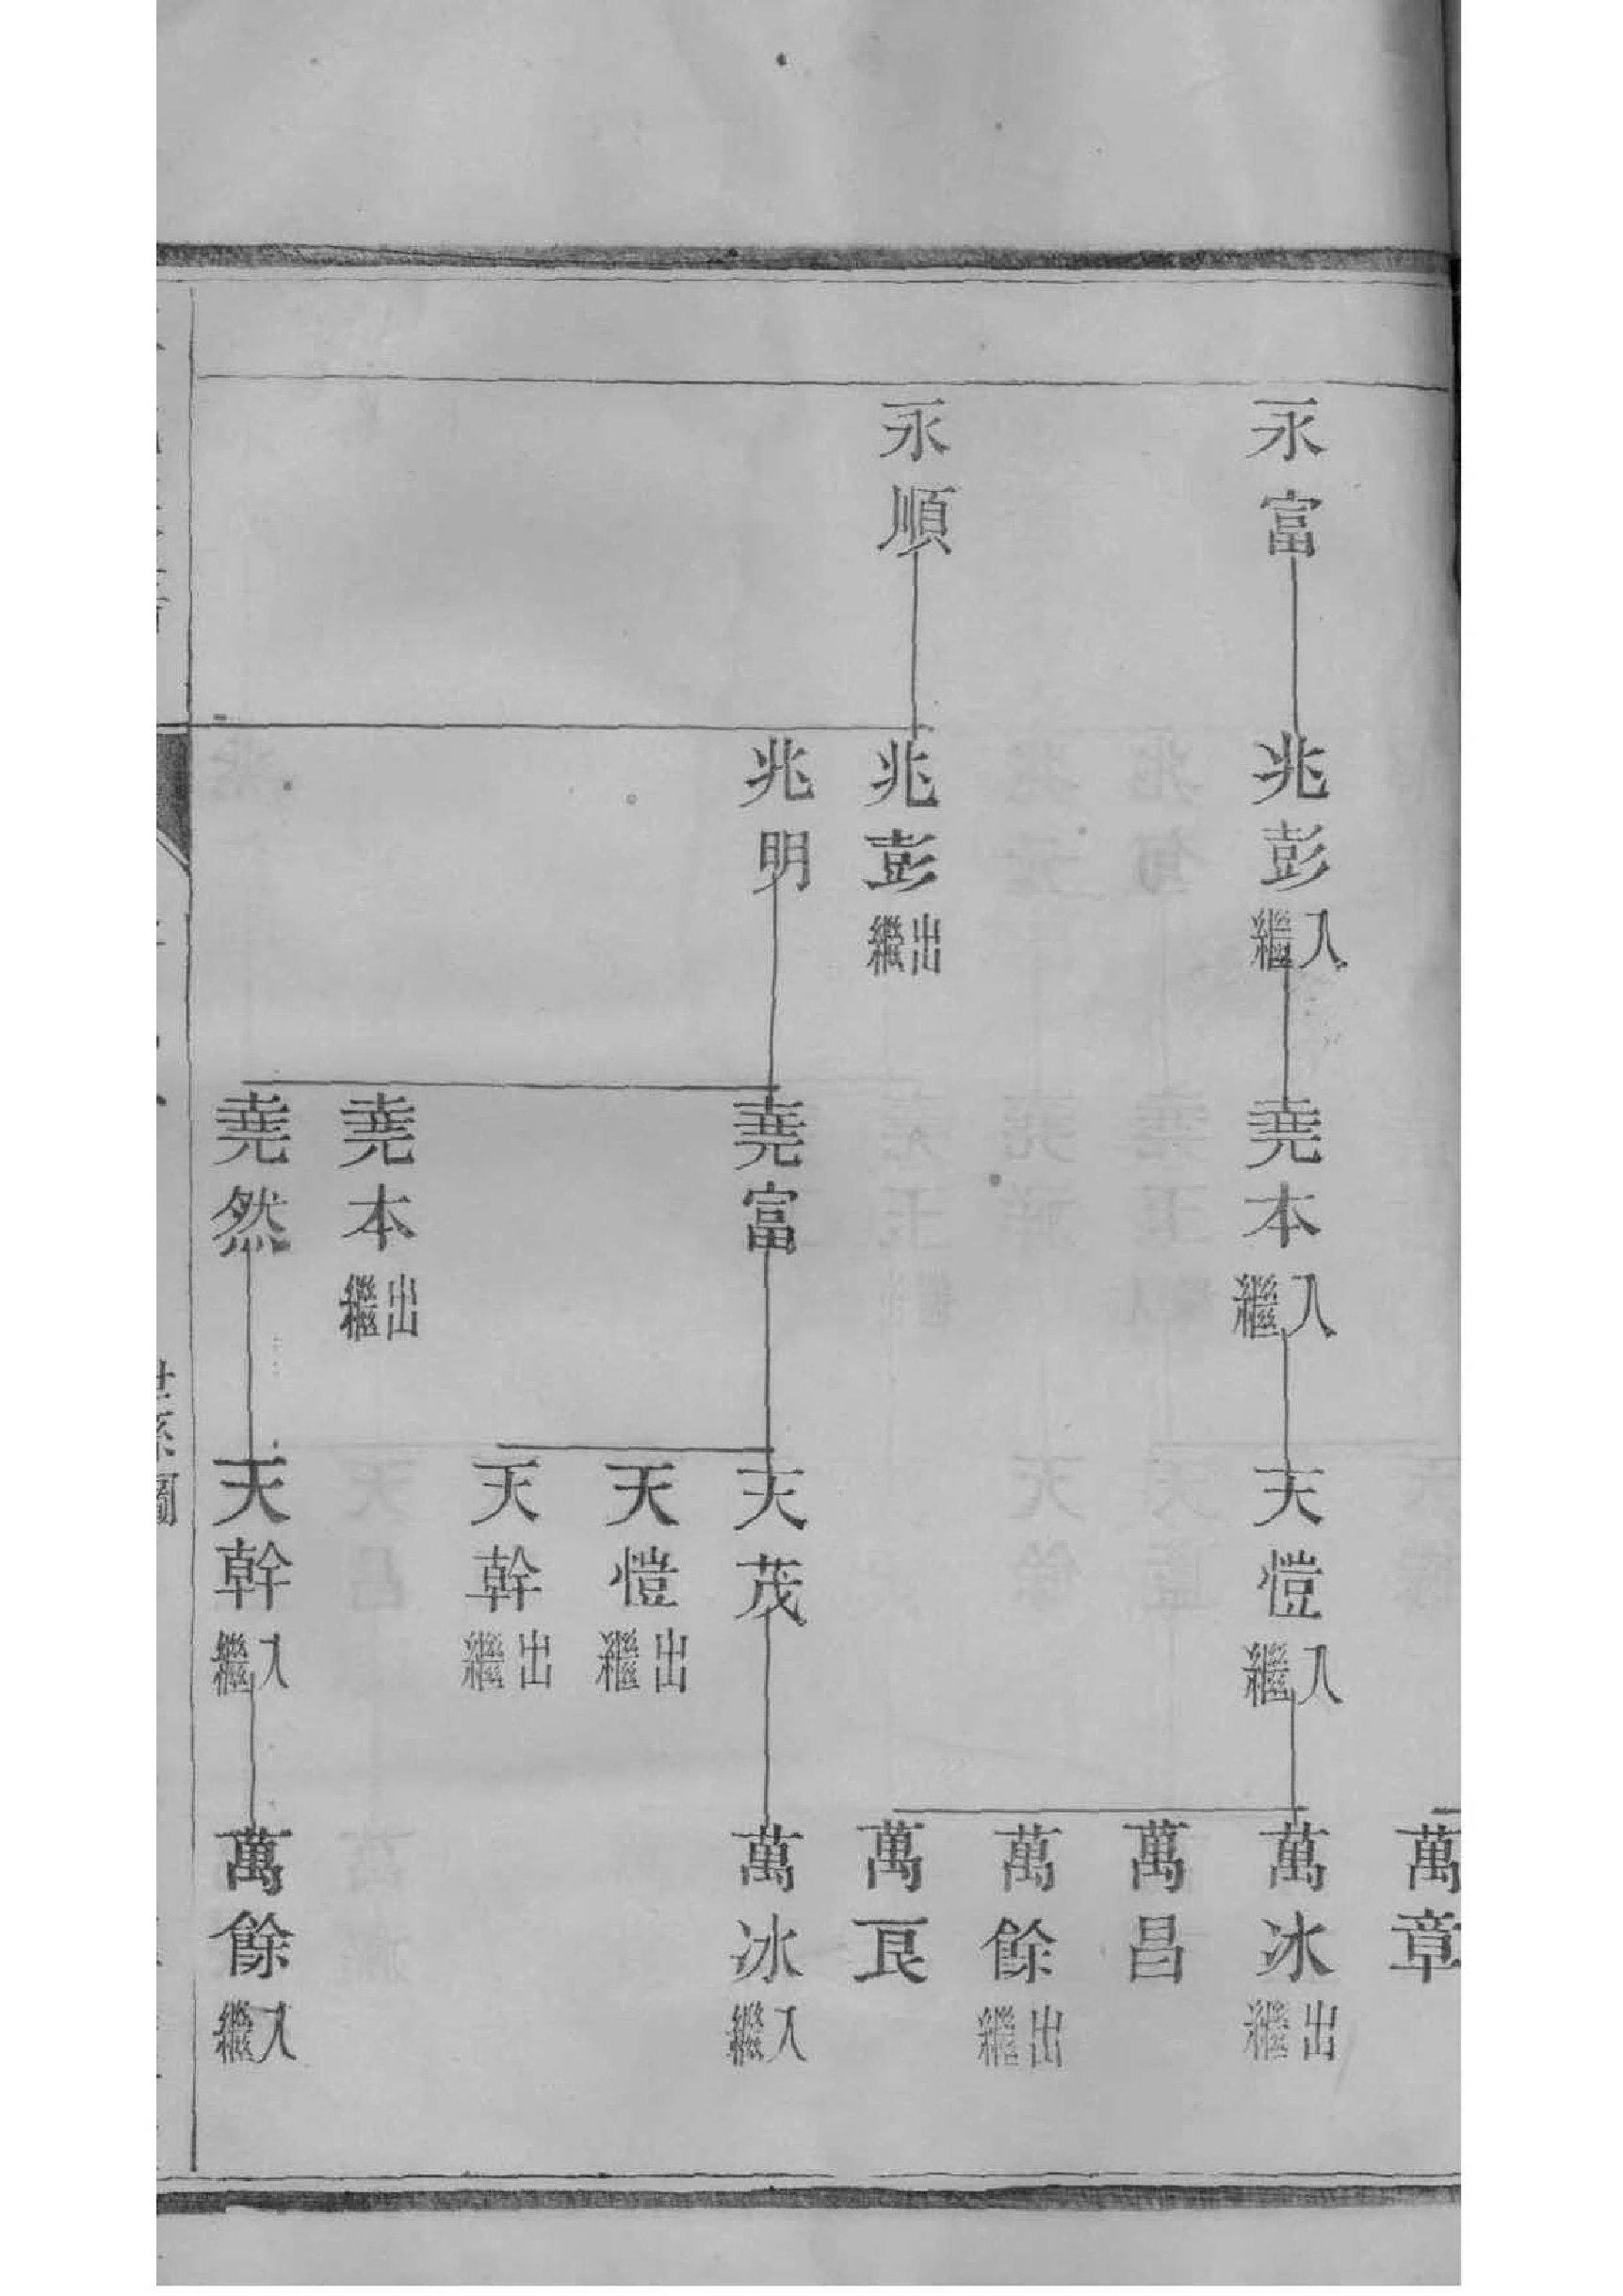 永富
兆彭
入繼
堯本
入繼
天愷
入繼
萬章
萬冰
出繼
萬昌
萬餘
出繼
萬良
永順
兆彭
出繼
兆明
堯富
天茂
萬冰
入繼
天愷
出繼
天幹
出繼
堯本
出繼
堯然
天幹
入繼
萬餘
入繼
世系圖